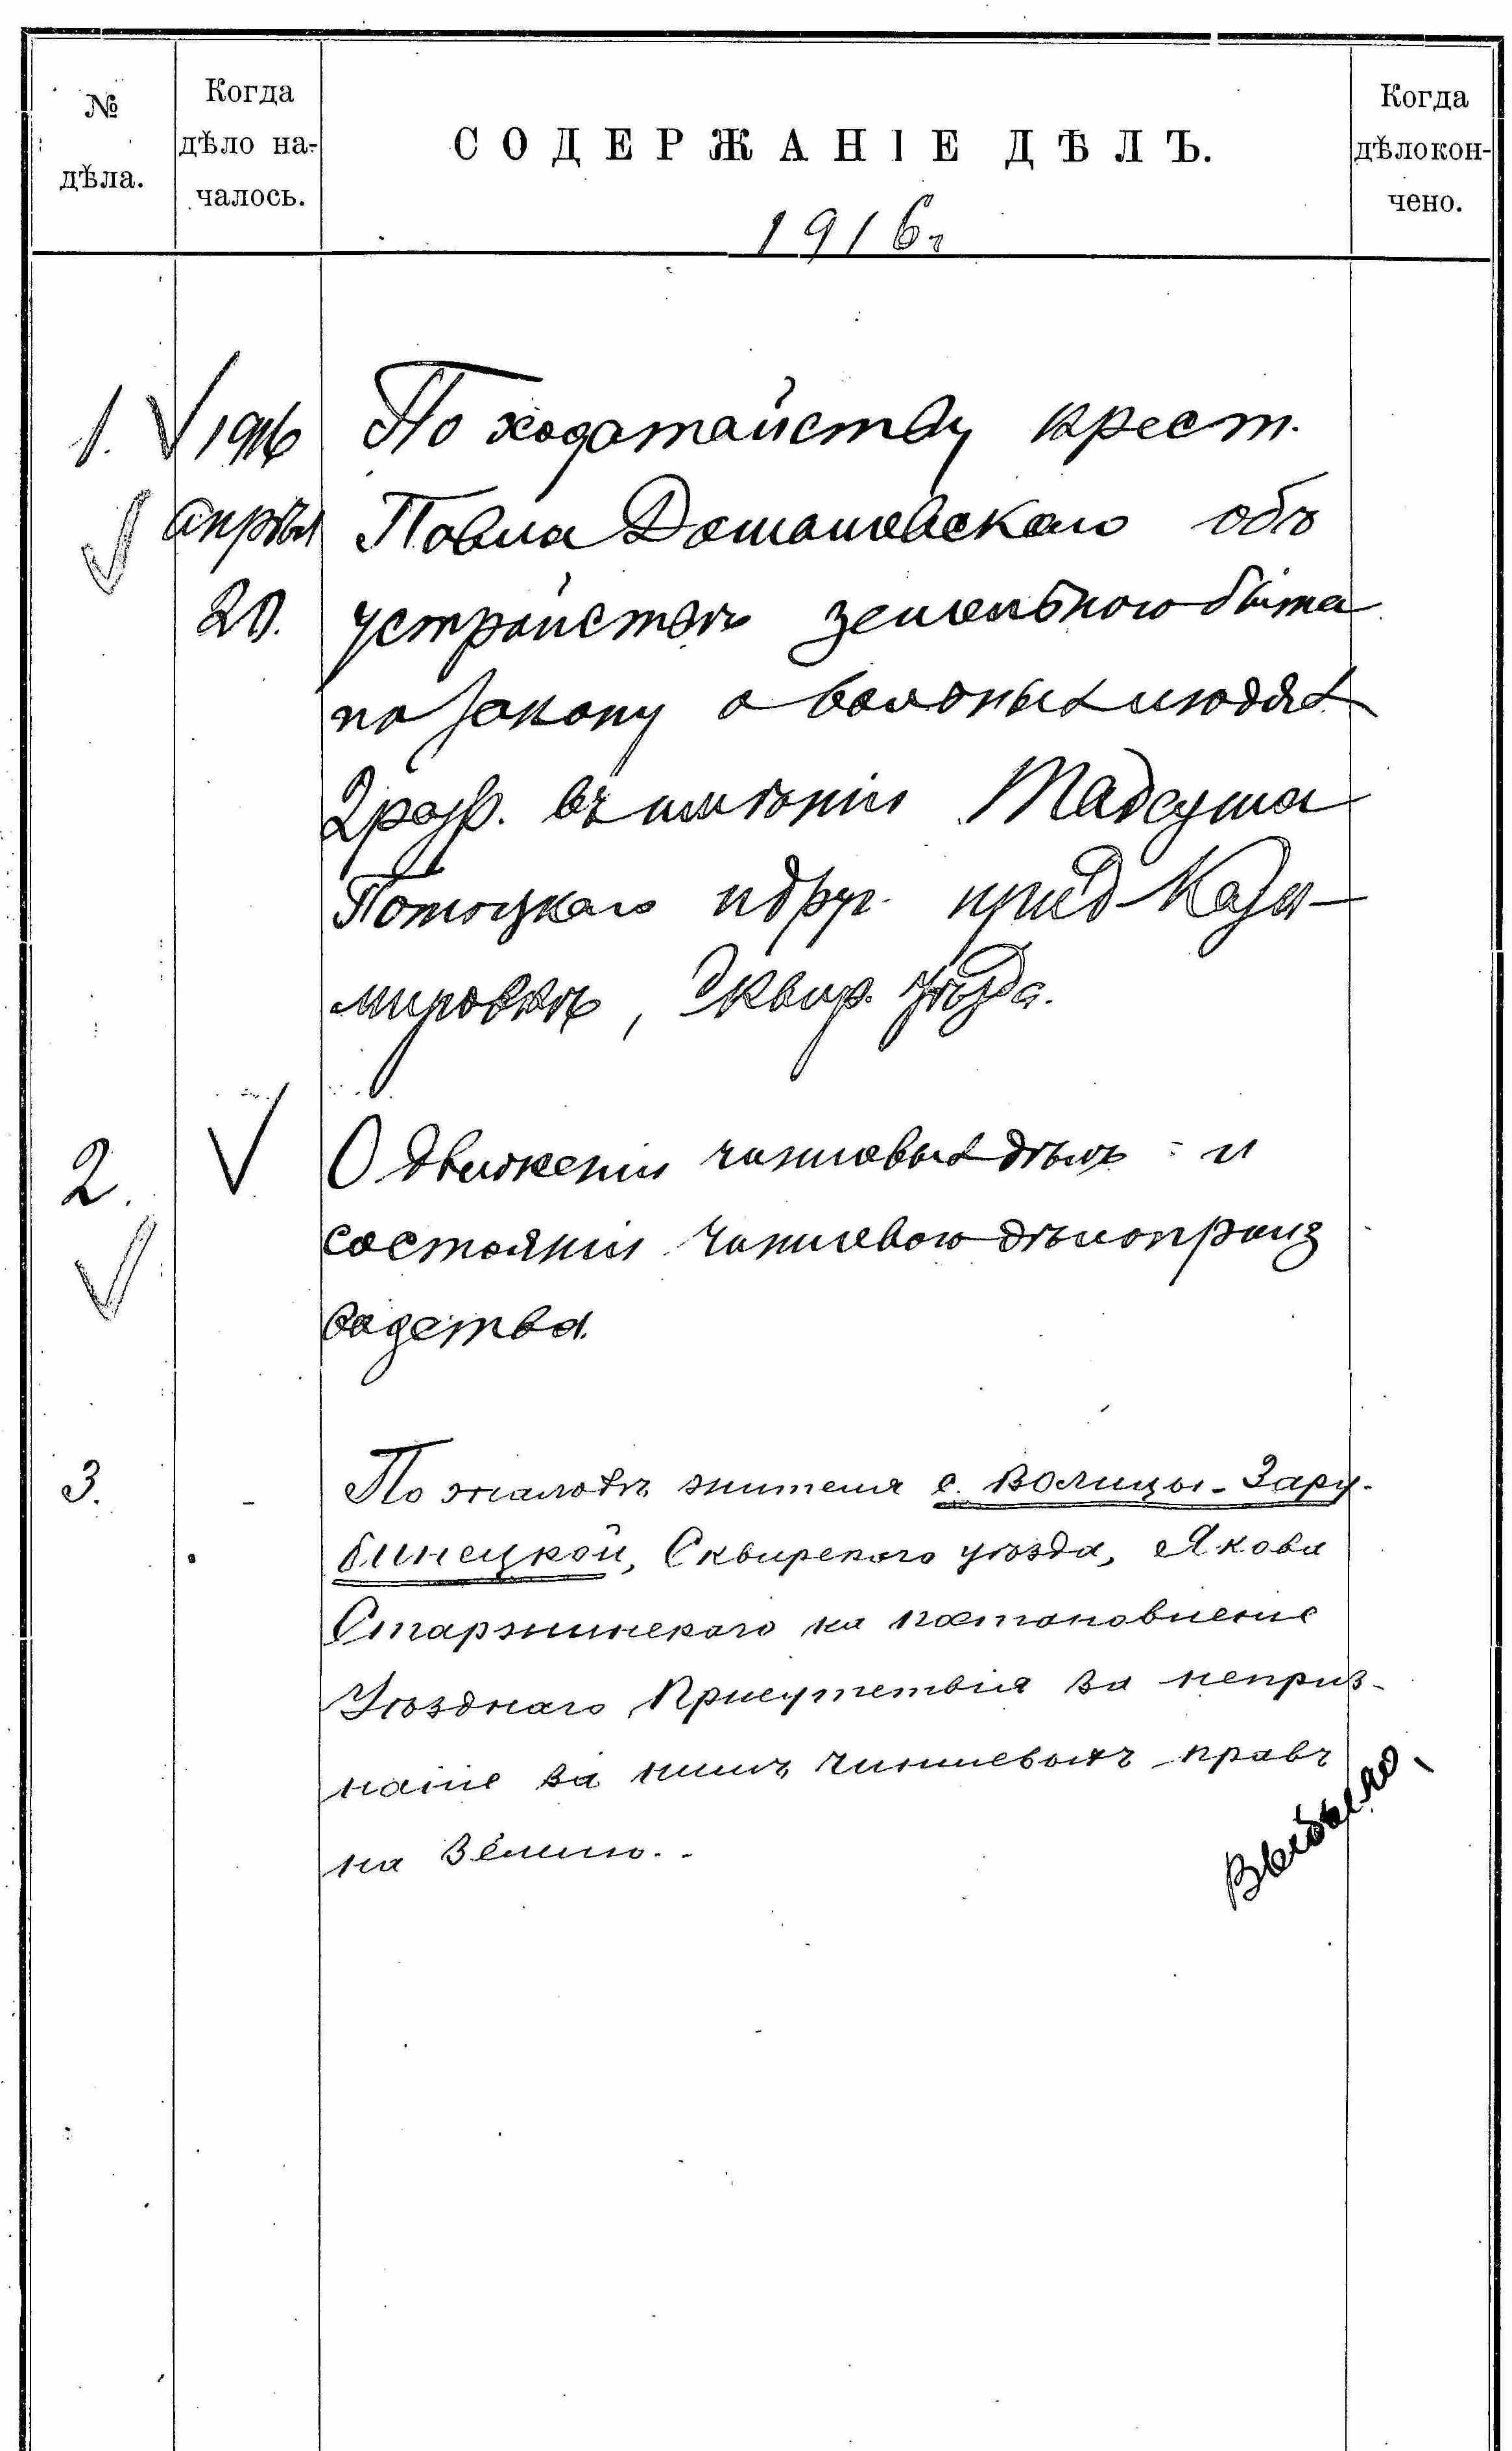 № дѣла.
Когда дѣло на-чалось.
СОДЕРЖАНІЕ ДѢЛЪ.
Когда дѣло кон-чено.
1916г
1. 1916 По ходатайству крест.
апрѣля Павла Домашевскаго объ
20. устройствѣ земельного быта
по закону о вольныхъ людяхъ
2 разр. въ имѣніи Тадеуша
Потоцкаго и др. при д. Кази-
мировкѣ, Сквир. уѣзда.
2. О движеніи чиншевыхъ дѣлъ и
состояніи чиншеваго дѣлопроиз
водства.
3. По жалобѣ жителя с. Волицы-Зару-
бинецкой, Сквирскаго уѣзда, Якова
Старжинскаго на постановленіе
Уѣзднаго Присутствія за неприз-
наніе за нимъ чиншевыхъ правъ
на землю.